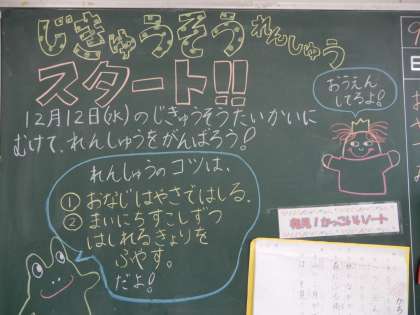 じきゅうそう れんしゅう
スタート!!
12月12日(水)のじきゅうそうたいかいに
むけて、れんしゅうをがんばろう!
おうえん
してるよ!
れんしゅうのコツは、
① おなじはやさではしる。
② まいにちすこしずつ
はしれるきょりを
ふやす。
だよ!
発見!かっこいいノート